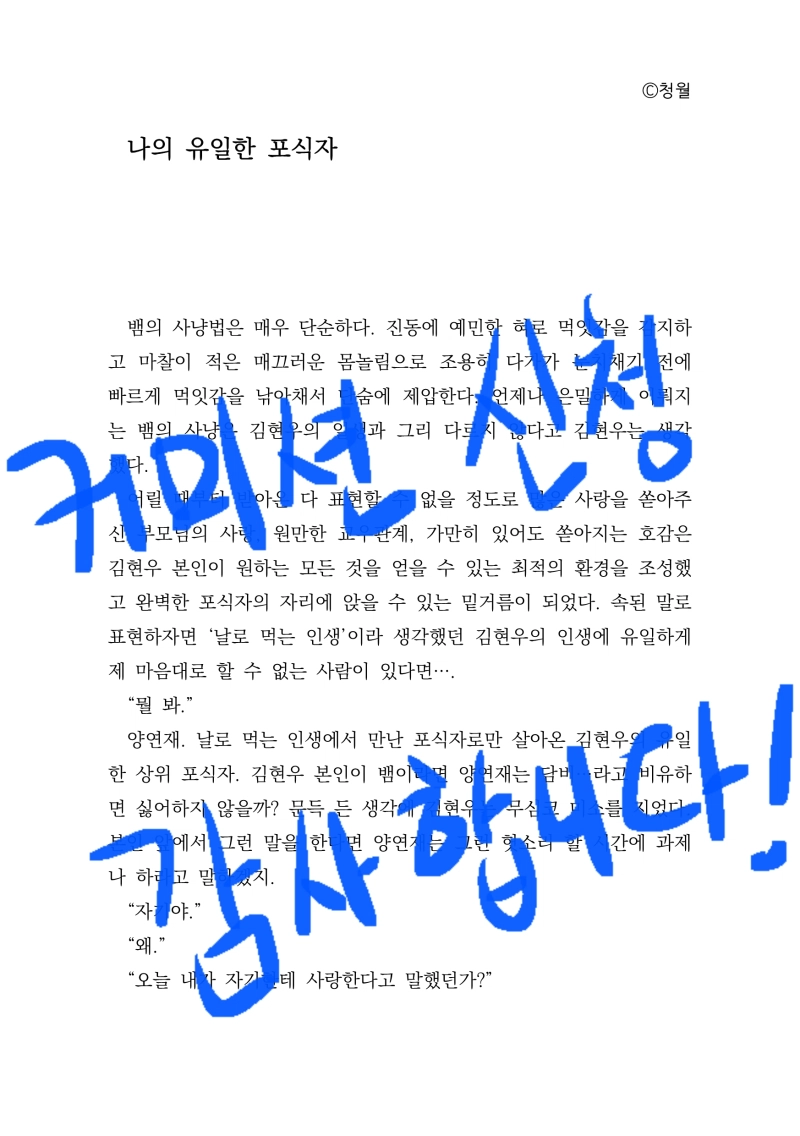 ©청월
나의 유일한 포식자
뱀의 사냥법은 매우 단순하다. 진동에 예민한 혀로 먹잇감을 감지하
고 마찰이 적은 매끄러운 몸놀림으로 조용히 다가가 눈치채기 전에
빠르게 먹잇감을 낚아채서 단숨에 제압한다. 언제나 은밀하게 이뤄지
는 뱀의 사냥은 김현우의 일생과 그리 다르지 않다고 김현우는 생각
했다.
어릴 때부터 받아온 다 표현할 수 없을 정도로 많은 사랑을 쏟아주
신 부모님의 사랑, 원만한 교우관계, 가만히 있어도 쏟아지는 호감은
김현우 본인이 원하는 모든 것을 얻을 수 있는 최적의 환경을 조성했
고 완벽한 포식자의 자리에 앉을 수 있는 밑거름이 되었다. 속된 말로
표현하자면 ‘날로 먹는 인생’이라 생각했던 김현우의 인생에 유일하게
제 마음대로 할 수 없는 사람이 있다면….
“뭘 봐.”
양연재. 날로 먹는 인생에서 만난 포식자로만 살아온 김현우의 유일
한 상위 포식자. 김현우 본인이 뱀이라면 양연재는 담비…라고 비유하
면 싫어하지 않을까? 문득 든 생각에 김현우는 무심코 미소를 지었다.
본인 앞에서 그런 말을 한다면 양연재는 그런 헛소리 할 시간에 과제
나 하라고 말하겠지.
“자기야.”
“왜.”
“오늘 내가 자기한테 사랑한다고 말했던가?”
커미션 신청
감사합니다!